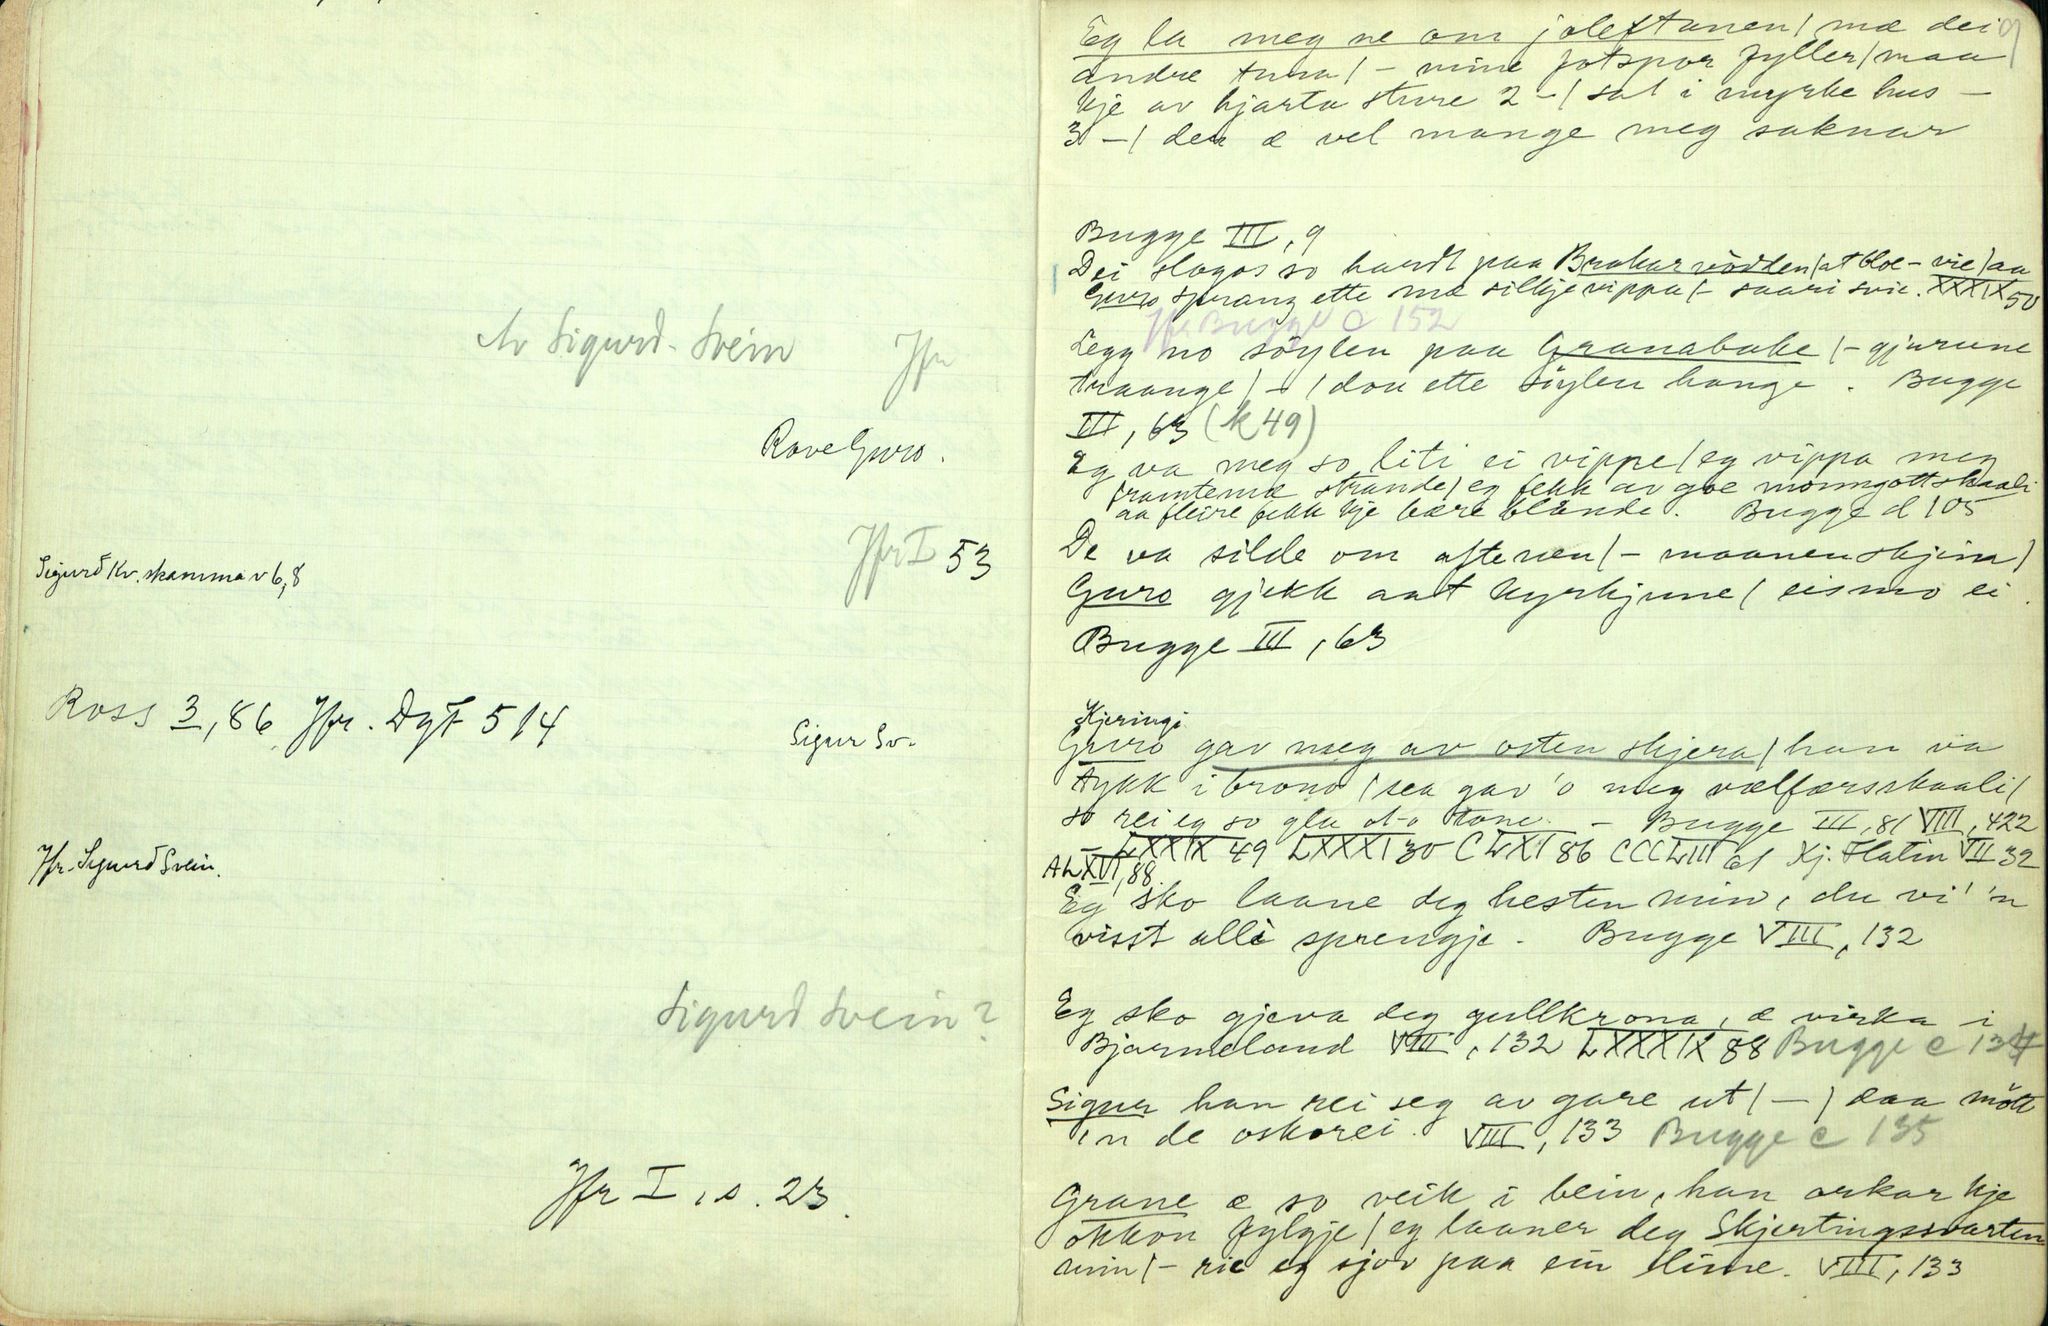 Av Sigurd Svein Jfr
Rove Guro.
Jfr I 53
Sigurd Kv. skamma v 6,8
Ross 3,86 Jfr. DgF 514
Sigur Sv.
Jfr. Sigurd Svein.
Sigurd Svein?
Jfr I, s. 23.
9
Eg la meg ne om joleftanen / mæ dei
andre tuna / – mine fotspor fyller / maa
kje av hjarta sture 2 – / sat i myrke hus –
3 – / der æ vel mange meg saknar
Bugge III, 9
Dei slogos so hardt paa Brokarvödden / at bloe – vie / aa
Guro sprang ette mæ silkjevippa / – saari svie. XXXIX 50
Jfr Bugge c 152
Legg no söylen paa Granabake / – gjurune
traange / – / dou ette söylen hange. Bugge
III, 63 (k 49)
Eg va meg so liti ei vippe / eg vippa meg
framtemæ strande / eg fekk av goe monngottskaali
aa fleire fekk kje bære blande. Bugge d 105
De va silde om aftenen / – maanen skjin /
Guro gjekk aat kyrkjune / eismo ei.
Bugge III, 63
Kjeringi
Guro gav meg av osten skjera / han va
tykk i brono / sea gav 'o meg vælfærsskaali /
so rei eg so gla at-o tone. – Bugge III, 81 VIII, 422
– LXXIX 49 LXXXI 30 CLXI 86 CCCLIII 61 Kj. Flatin VII 32
A LXVI, 88.
Eg sko laane deg hesten min, du vi' 'n
visst alli sprengje. Bugge VIII, 132
Eg sko gjeva deg gullkrona, æ virka i
Bjarmeland VIII, 132 LXXXIX 88 Bugge c 134
Sigur han rei seg av gare ut / – / daa mött
'n de oskorei. VIII, 133 Bugge c 135
Grane æ so veik i bein, han orkar kje
okkon fylgje / eg laaner deg Skjertingssvarten
min / – rie eg sjov paa ein lime. VIII, 133